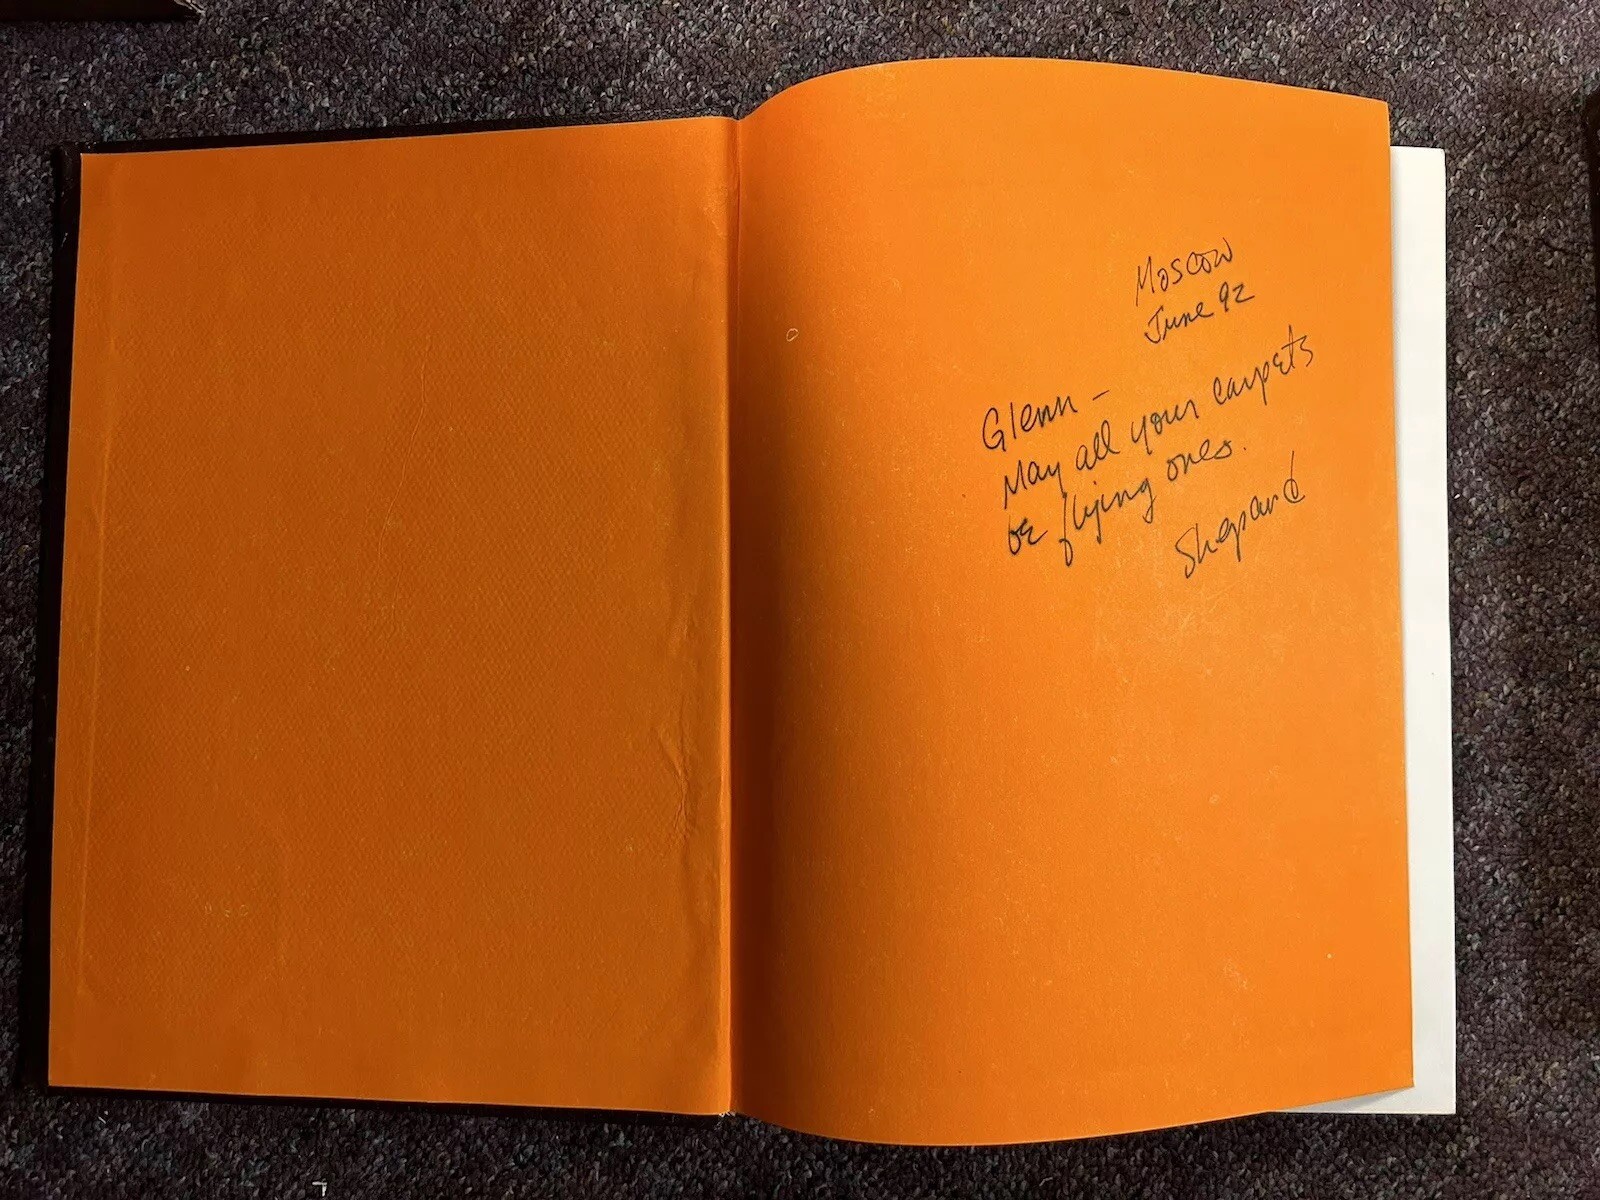 Moscow
June 92
Glenn –
May all your carpets
be flying ones.
Shepard